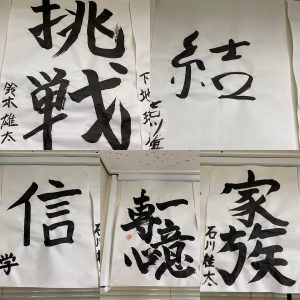 挑戦
鈴木雄太
結
下地
信
学
一意
専心
家族
石川
太